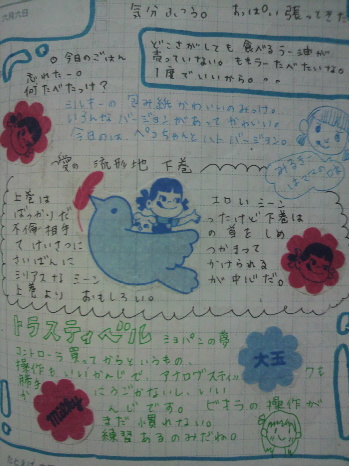 六月六日
気分ふつう。 おっぱい張ってきた
◎今日のごはん
忘れたー。
何たべたっけ?
どこさがしても 食べるラー油が
売っていない。ももうーたべたいな。
1度でいいから。。
ミルキーの包み紙かわいいのみっけ。
いろんなバージョンがあって かわいい。
今日のは、ペコちゃんとハト バージョン。
みるきーは
ママの味
愛の流刑地 下巻
上巻は
ばっかりだ
不倫相手
て けいさつに
さいばんに
シリアスな シーン
上巻より おもしろい。
エロい シーン
ったけど 下巻は
の首をしめ
つかまって
かけられる
が中心だ。
トラスティベル ショパンの夢
コントローラ 買ってからというもの、
操作もいいかんじで、アナログスティックを
勝手に うごかないし、いい
んじです。 ビオラの操作が
まだ 慣れない。
練習あるのみだね。
大玉
Milky